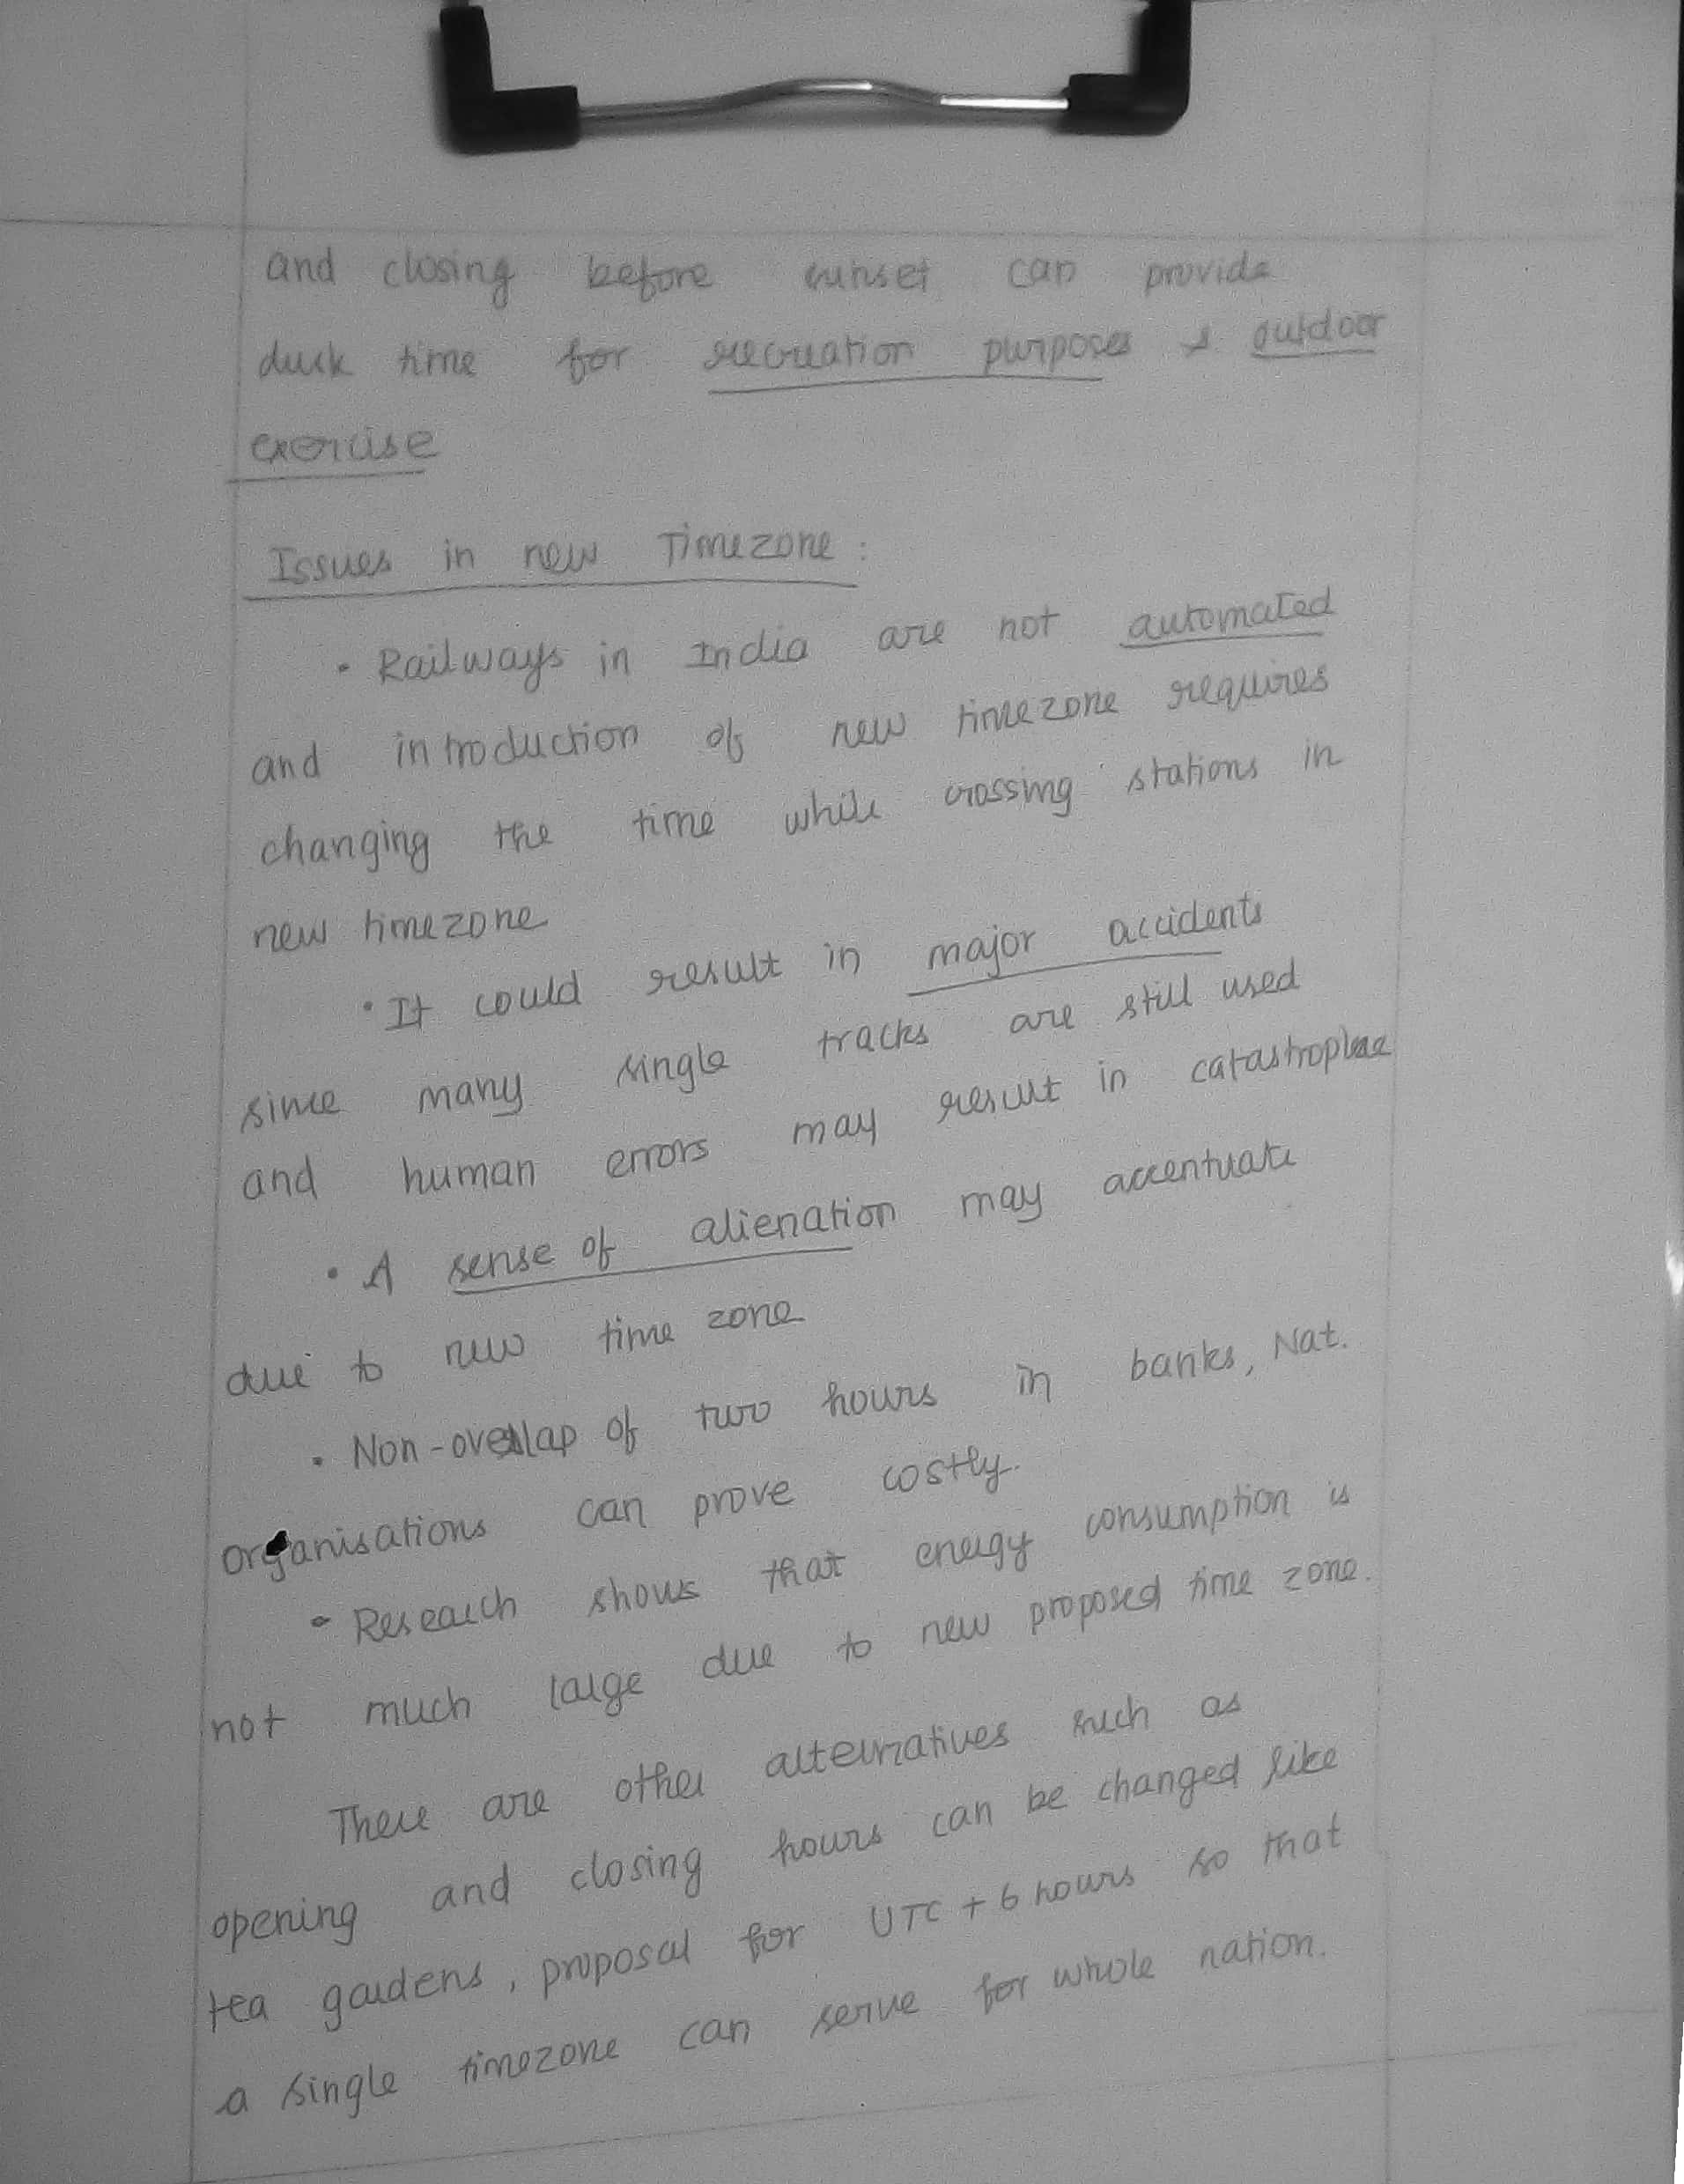 and closing before sunset can provide
dusk time for recreation purposes & outdoor
exercise
Issues in new Timezone :
• Railways in India are not automated
and introduction of new timezone requires
changing the time while crossing stations in
new timezone
• It could result in major accidents
since many single tracks are still used
and human errors may result in catastrophe
• A sense of alienation may accentuate
due to new time zone
• Non-overlap of two hours in banks, Nat.
organisations can prove costly.
• Research shows that energy consumption is
not much large due to new proposed time zone.
There are other alternatives such as
opening and closing hours can be changed like
tea gardens, proposal for UTC + 6 hours so that
a single timezone can serve for whole nation.